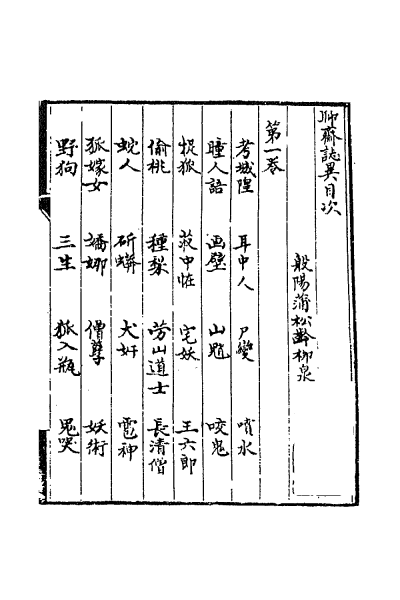 聊齋誌異目次
般陽蒲松齡柳泉
第一卷
考城隍 耳中人 尸變 噴水
瞳人語 画壁 山魈 咬鬼
捉狐 荍中恠 宅妖 王六郎
偷桃 種梨 劳山道士 長清僧
蛇人 斫蟒 犬奸 雹神
狐嫁女 嬌娜 僧孽 妖術
野狗 三生 狐入瓶 鬼哭